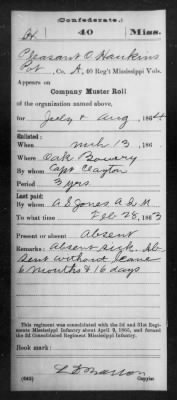 (Confederate.)
H 40 Miss.
Pleasant O Hankins
Pvt, Co. A, 40 Reg't Mississippi Vols.
Appears on
Company Muster Roll
of the organization named above,
for July & Aug, 1864
Enlisted:
When Mch 13, 186
Where Oak Bowery
By whom Capt Clayton
Period 3 yrs.
Last paid:
By whom A E Jones A Q M
To what time Feb 28, 1863
Present or absent Absent
Remarks: Absent sick Ab-
sent without leave
6 months & 16 days
This regiment was consolidated with the 3d and 31st Regi-
ments Mississippi Infantry about April 9, 1865, and formed
the 3d Consolidated Regiment Mississippi Infantry.
Book mark:
(642) Copyist.